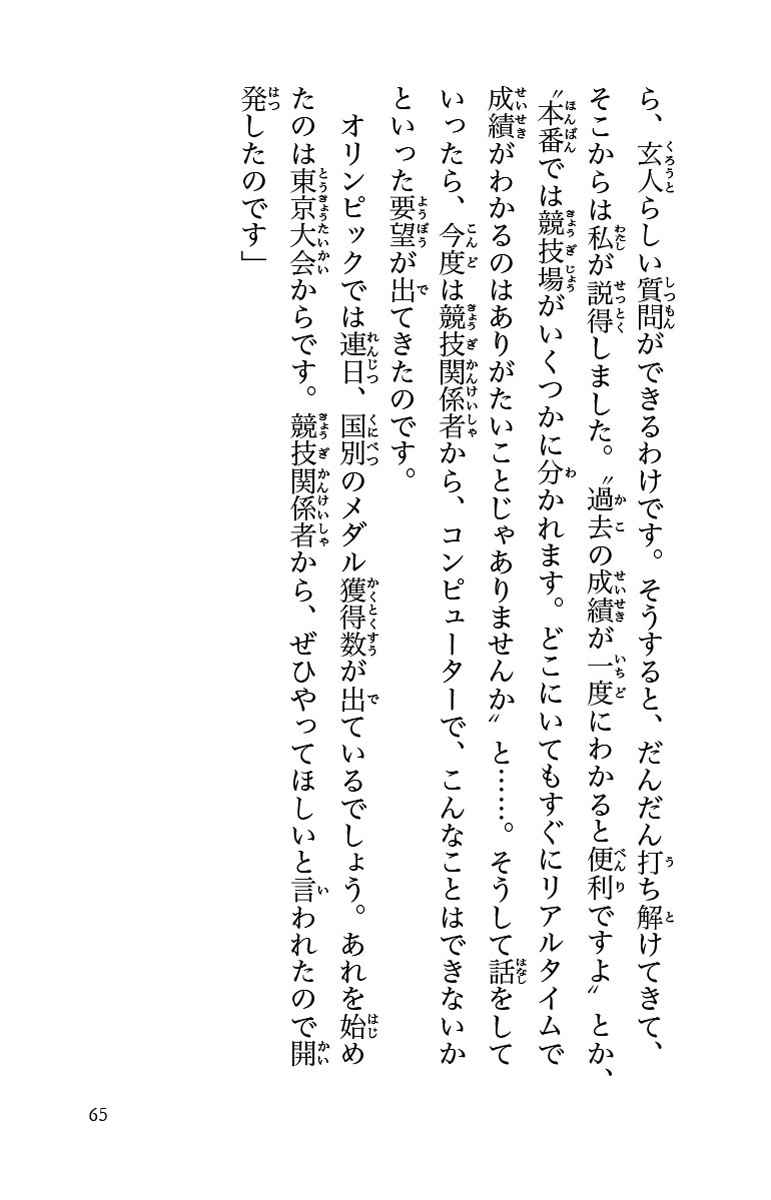 ら、玄人らしい質問ができるわけです。そうすると、だんだん打ち解けてきて、
そこからは私が説得しました。〝過去の成績が一度にわかると便利ですよ〟とか、
〝本番では競技場がいくつかに分かれます。どこにいてもすぐにリアルタイムで
成績がわかるのはありがたいことじゃありませんか〟と……。そうして話をして
いったら、今度は競技関係者から、コンピューターで、こんなことはできないか
といった要望が出てきたのです。
オリンピックでは連日、国別のメダル獲得数が出ているでしょう。あれを始め
たのは東京大会からです。競技関係者から、ぜひやってほしいと言われたので開
発したのです」
65